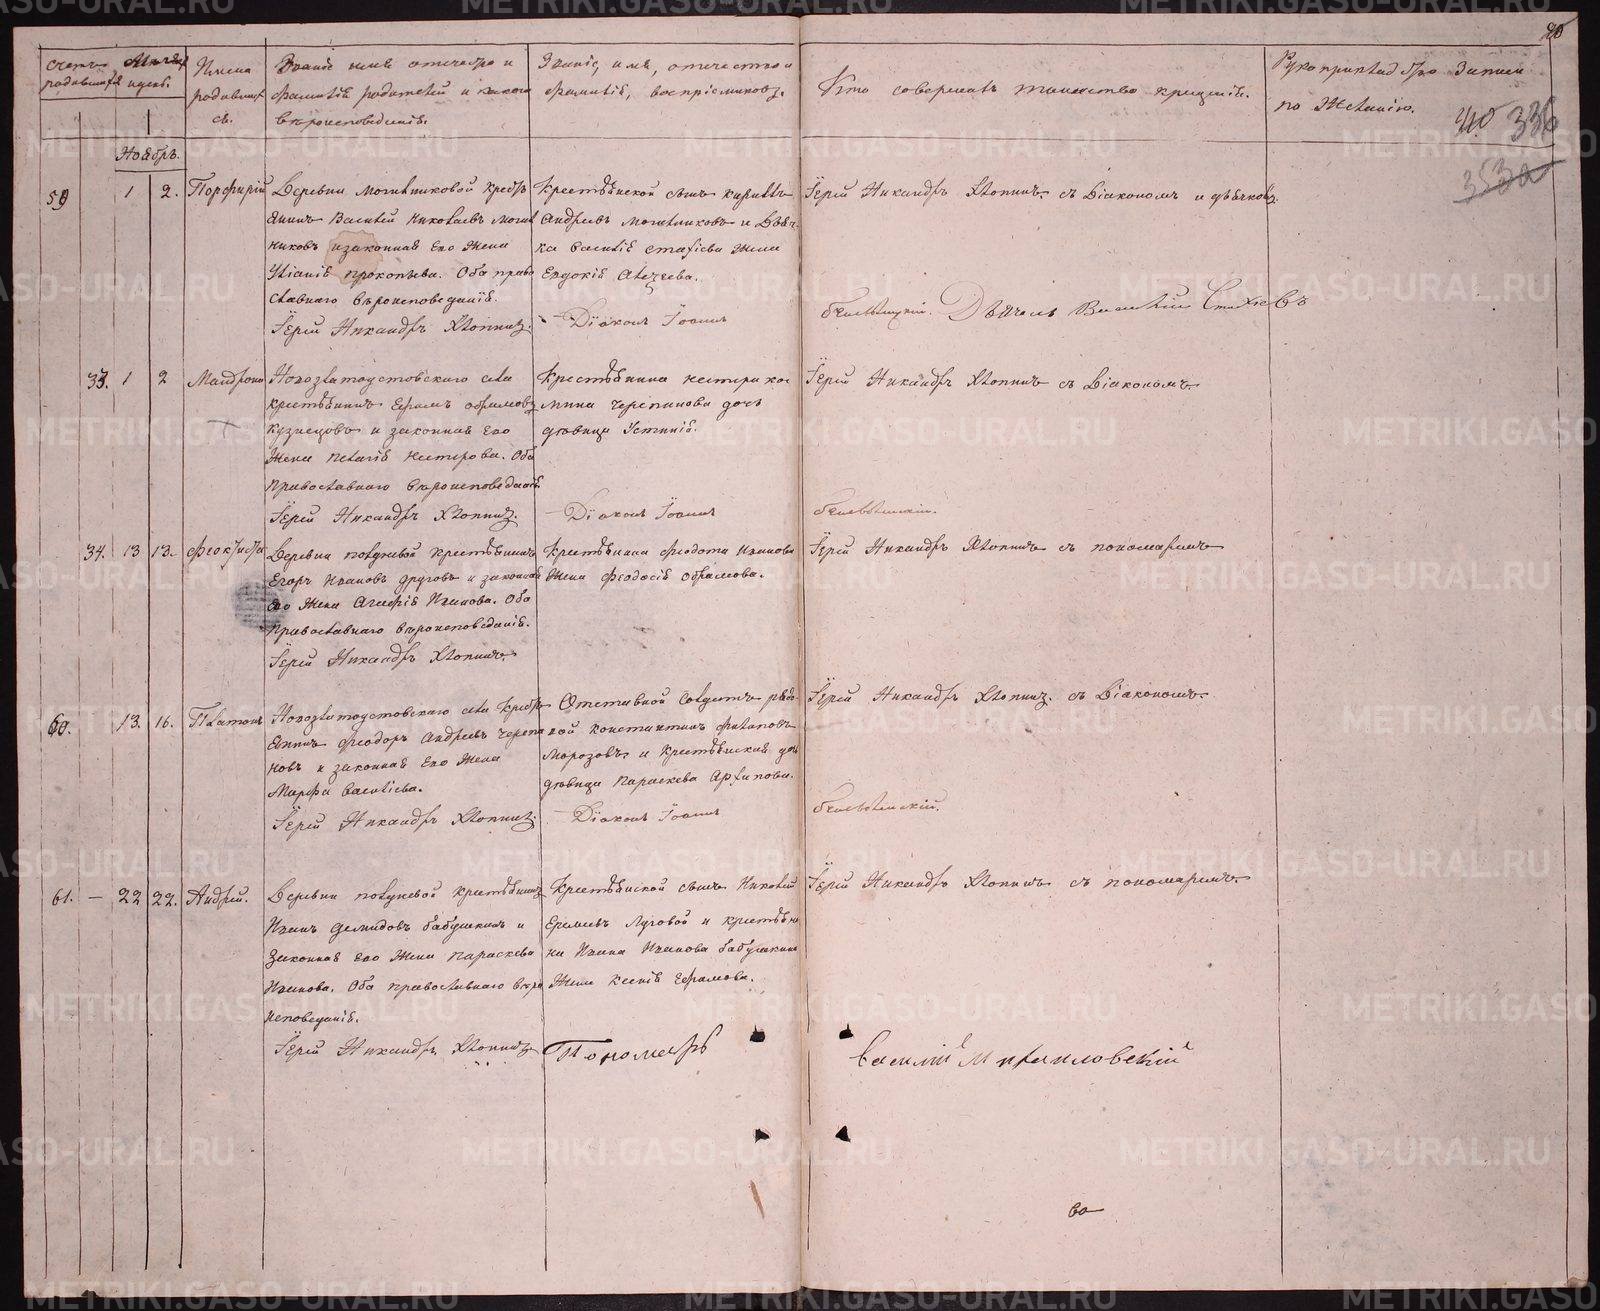 40
Счетъ родившихся
Мѣсяцъ и день.
Имена родившихся.
Званіе имя отечество и
фамилія родителей и какого
вѣроисповеданія.
Званіе, имя, отечество и
фамилія, воспріемниковъ.
Кто совершалъ таинство крещенія.
Рукоприкладство Записи
по Желанію.
40 336
353а
Ноябрь.
59 1 2. Порфирій
Деревни Могильниковой Крестьянинъ
Василій Николаевъ Могильниковъ
и законная Его Жена
Уліанія Прокопьева. Оба православнаго
вѣроисповеданія.
Іерей Никандръ Хлопинъ.
Крестьянской сынъ Кириллъ
Андреевъ Могильниковъ и Дьячка
Василія Стахіева Жена
Евдокія Алеѯеева.
Діаконъ Іоаннъ
Іерей Никандръ Хлопинъ. съ Діакономъ и дьячкомъ.
Дьячекъ Василій Стахіевъ
33. 1 2 Матрона
Новозлатоустовскаго села
крестьянинъ Ефимъ
Кузнецовъ и законная Его
Жена Пелагія Нестерова. Оба
Православнаго вѣроисповеданія.
Іерей Никандръ Хлопинъ.
Крестьянина Нестера Козмина
Черепанова дочь
дѣвица Устинія.
Діаконъ Іоаннъ
Іерей Никандръ Хлопинъ съ Діакономъ
34. 13 13. Феоктиста
Деревни крестьянинъ
Егоръ Ивановъ и законная
его Жена Агафія Иванова. Оба
Православнаго вѣроисповеданія.
Іерей Никандръ Хлопинъ
Крестьянина Феодота Иванова
Жена Феодосія
Іерей Никандръ Хлопинъ съ пономаремъ
60. 13. 16. Платонъ
Новозлатоустовскаго села Крестьянинъ
Феодоръ Андреевъ Черепановъ
и законная Его Жена
Марфа Васильева.
Іерей Никандръ Хлопинъ.
Отставной Солдатъ рядовой
Константинъ Филиповъ
Морозовъ и Крестьянская дочь
дѣвица Параскева Архипова.
Діаконъ Іоаннъ
Іерей Никандръ Хлопинъ. съ Діакономъ.
61. — 22 22. Андрей.
Деревни крестьянинъ
Иванъ Демидовъ Бабушкинъ и
Законная Его Жена Параскева
Иванова. Оба православнаго вѣроисповеданія.
Іерей Никандръ Хлопинъ
Крестьянской сынъ Николай
Луговой и крестьянина
Ивана Иванова Бабушкина
Жена Ксенія Ефимова.
Іерей Никандръ Хлопинъ съ пономаремъ.
Пономарь Василій Михаиловскій
METRIKI.GASO-URAL.RU